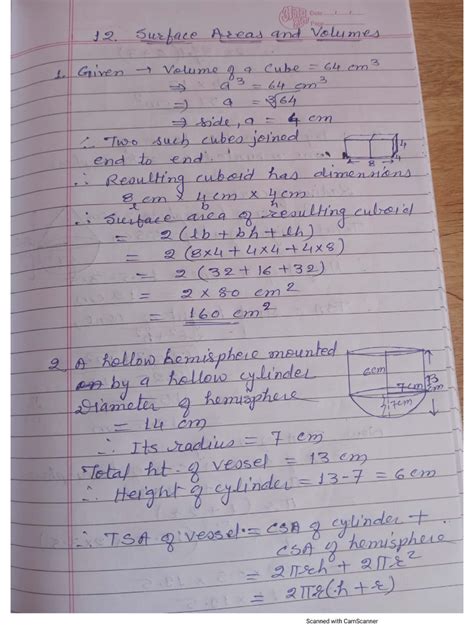 12. Surface Areas and Volumes
1. Given → Volume of a Cube = 64 cm³
⇒ a³ = 64 cm³
⇒ a = ∛64
⇒ side, a = 4 cm
∴ Two such cubes joined
end to end
4
8
4
∴ Resulting cuboid has dimensions
8 cm × 4 cm × 4 cm
l b h
∴ Surface area of resulting cuboid
= 2 (lb + bh + lh)
= 2 (8×4 + 4×4 + 4×8)
= 2 (32 + 16 + 32)
= 2 × 80 cm²
= 160 cm²
2. A hollow hemisphere mounted
by a hollow cylinder
6cm
7cm
13 cm
7cm
Diameter of hemisphere
= 14 cm
∴ Its radius = 7 cm
Total ht. of vessel = 13 cm
∴ Height of cylinder = 13-7 = 6 cm
∴ TSA of vessel = CSA of cylinder +
CSA of hemisphere
= 2πrh + 2πr²
= 2πr(h + r)
Scanned with CamScanner